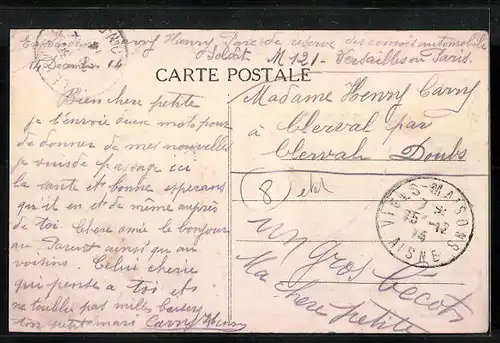 Expediteur Carry Henry Parc de reserve des convois automobile
14 Decembre 14 Soldat M 121 - Versailles ou Paris.
CARTE POSTALE
Bien chere petite
je t'envoie deux mots pour
de donner de mes nouvelles
je suis de passage ici
la sante est bonne esperans
qu'il en et de même auprès
de toi. Chere amie le bonjour
au Parent ainsi qu au
voisins. Celui cherie
qui pense a toi et
ne t'oublie pas milles baisers
ton petit mari Carry Henry
Madame Henry Carry
à Clerval par
Clerval Doubs
8
VIELS-MAISONS
15-12
14
AISNE
un gros becots
Ma chere petite